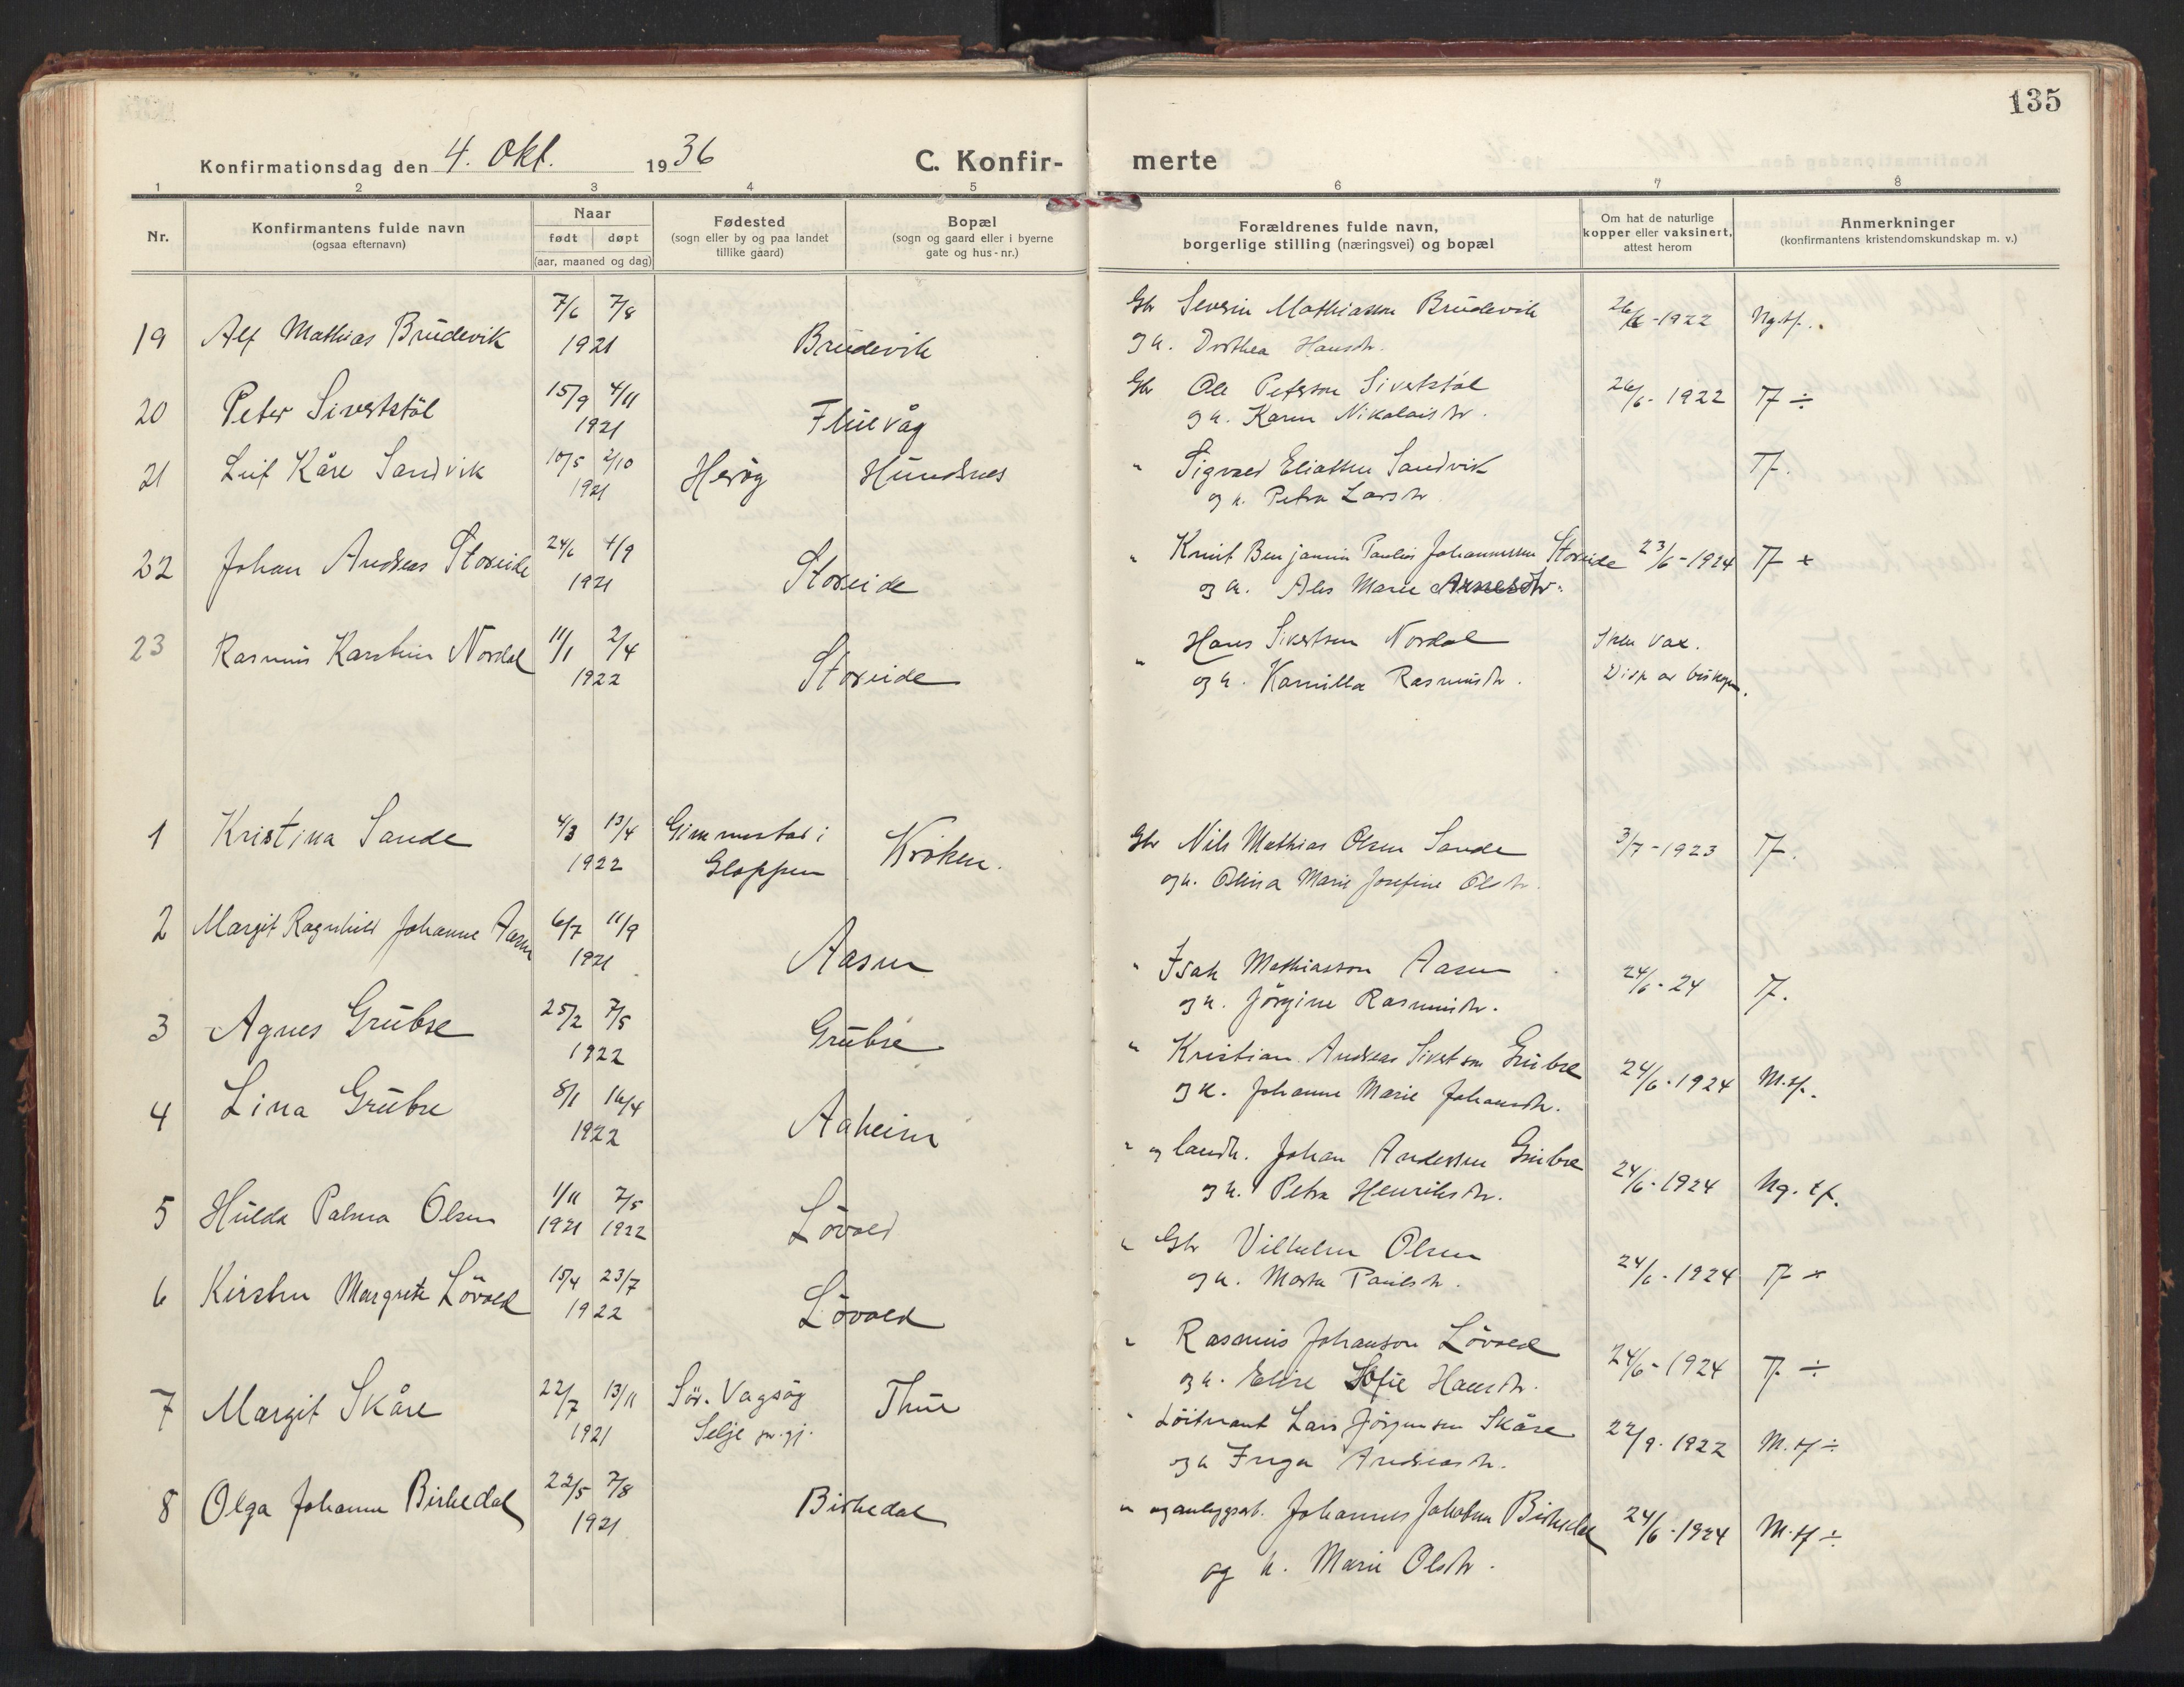 135
Konfirmationsdag den 4. Okt. 1936
C. Konfir-
merte
1 2 3 4 5 6 7 8
Nr.
Konfirmantens fulde navn
(ogsaa efternavn)
Naar
født døpt
(aar, maaned og dag)
Fødested
(sogn eller by og paa landet
tillike gaard)
Bopæl
(sogn og gaard eller i byerne
gate og hus-nr.)
Forældrenes fulde navn,
borgerlige stilling (næringsvei) og bopæl
Om hat de naturlige
kopper eller vaksinert,
attest herom
Anmerkninger
(konfirmantens kristendomskundskap m. v.)
19 Alf Mathias Brudevik 7/6 7/8 1921 Brudevik
Gbr Severin Mathiasson Brudevik 26/6-1922 Ng tf.
og h. Dorthea Hansdtr.
20 Peter Sivertstöl 15/9 4/11 1921 Fluevåg
Gbr Ole Peterson Sivertstöl 26/6-1922 Tf ÷
og h. Karen Nikolaisdtr.
21 Leif Kåre Sandvik 10/5 2/10 1921 Heröy Hundsnes
" Sigvald Eliassen Sandvik Tf.
og h. Petra Larsdtr
22 Johan Andreas Storeide 24/6 4/9 1921 Storeide
" Knut Benjamin Paulus Johannessen Storeide 23/6-1924 Tf +
og h. Marie Arnesdtr.
23 Rasmus Karsten Nordal 11/1 2/4 1922 Storeide
" Hans Sivertsen Nordal
og h. Kamilla Rasmusdtr. Disp av biskopen.
1 Kristina Sande 4/3 13/4 1922 Gimmestad i Gloppen Kroken.
Gbr Nils Mathias Olsen Sande 3/7-1923 Tf.
og h. Olina Marie Josefine Olsdtr.
2 Margit Ragnhild Johanne Aasen 6/7 11/9 1921 Aasen
" Isak Mathiasson Aasen 24/6-24 Tf.
og h. Jörgine Rasmusdtr.
3 Agnes Grubse 25/2 7/5 1922 Grubse
" Kristian Andreas Sivertson Grubse 24/6-1924 M.tf.
og h. Johanne Marie Johansdtr.
4 Lina Grubse 8/1 16/4 1922 Aaheim
" og landh. Johan Anderssen Grubse 24/6-1924 Ng. tf.
og h. Petra Henriksdtr.
5 Hulda Palma Olsen 1/11 1921 7/5 1922 Lövold
" Gbr Vilhelm Olsen 24/6-1924 Tf +
og h. Marta Paulsdtr.
6 Kirsten Margrete Lövold 15/4 23/7 1922 Lövold
" Rasmus Johanson Lövold 24/6-1924 Tf ÷
og h. Elise Sofie Hansdtr.
7 Margit Skåre 22/7 13/11 1921 Sör-Vagsöy Selje pr.gj. Thue
" Löitnant Lars Jörgensen Skåre 22/9-1922 M.tf ÷
og h Inga Andreasdtr.
8 Olga Johanne Birkedal 22/5 7/8 1921 Birkedal
" og anleggsarb. Johannes Jakobsen Birkedal 24/6-1924 M.tf ÷
og h. Marie Olsdtr.